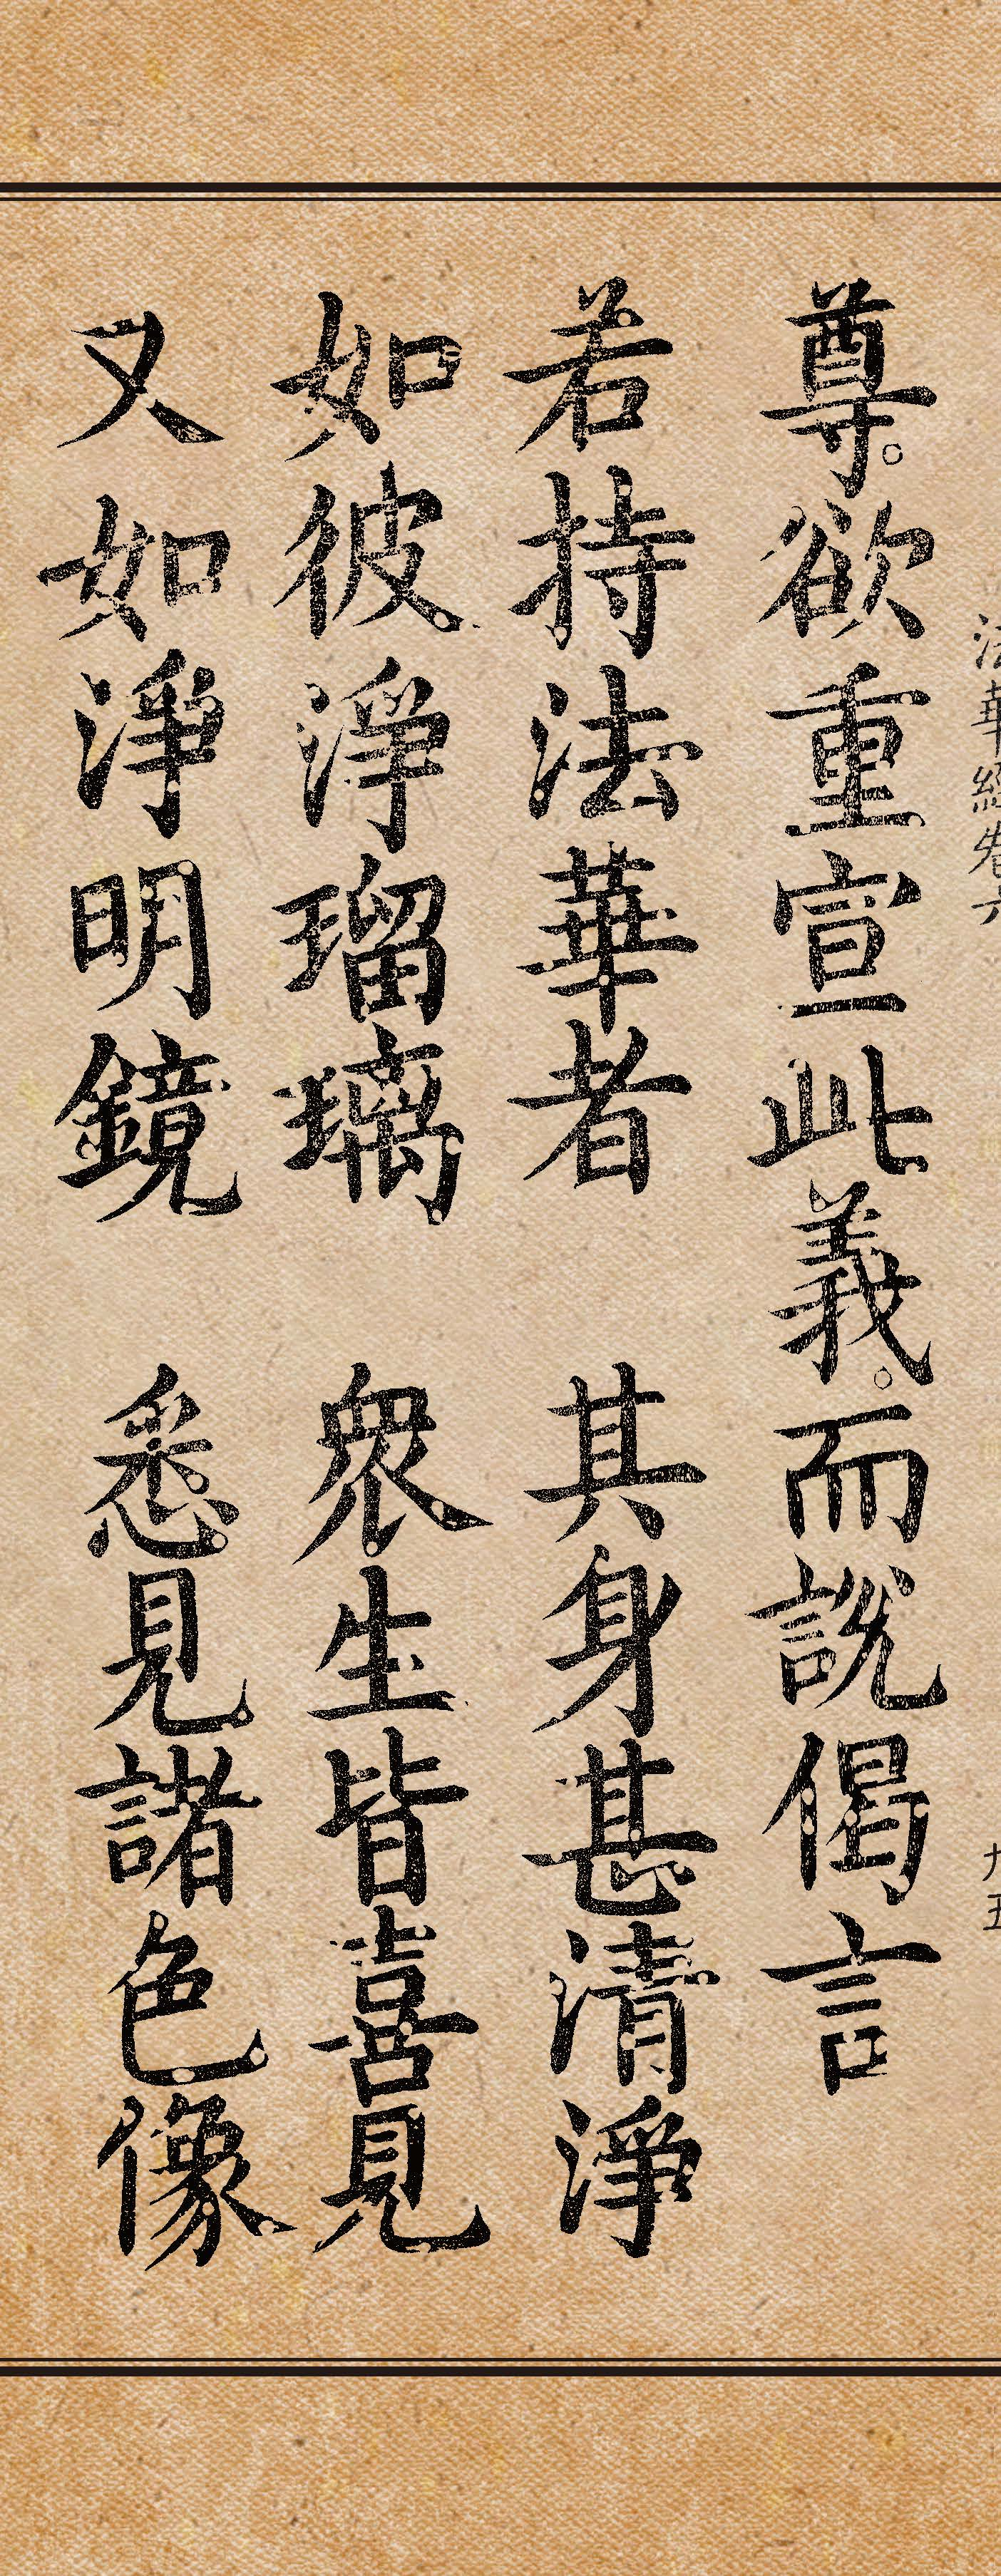 法華經卷六 九五
尊。欲重宣此義。而説偈言
若持法華者 其身甚清淨
如彼淨瑠璃 衆生皆喜見
又如淨明鏡 悉見諸色像